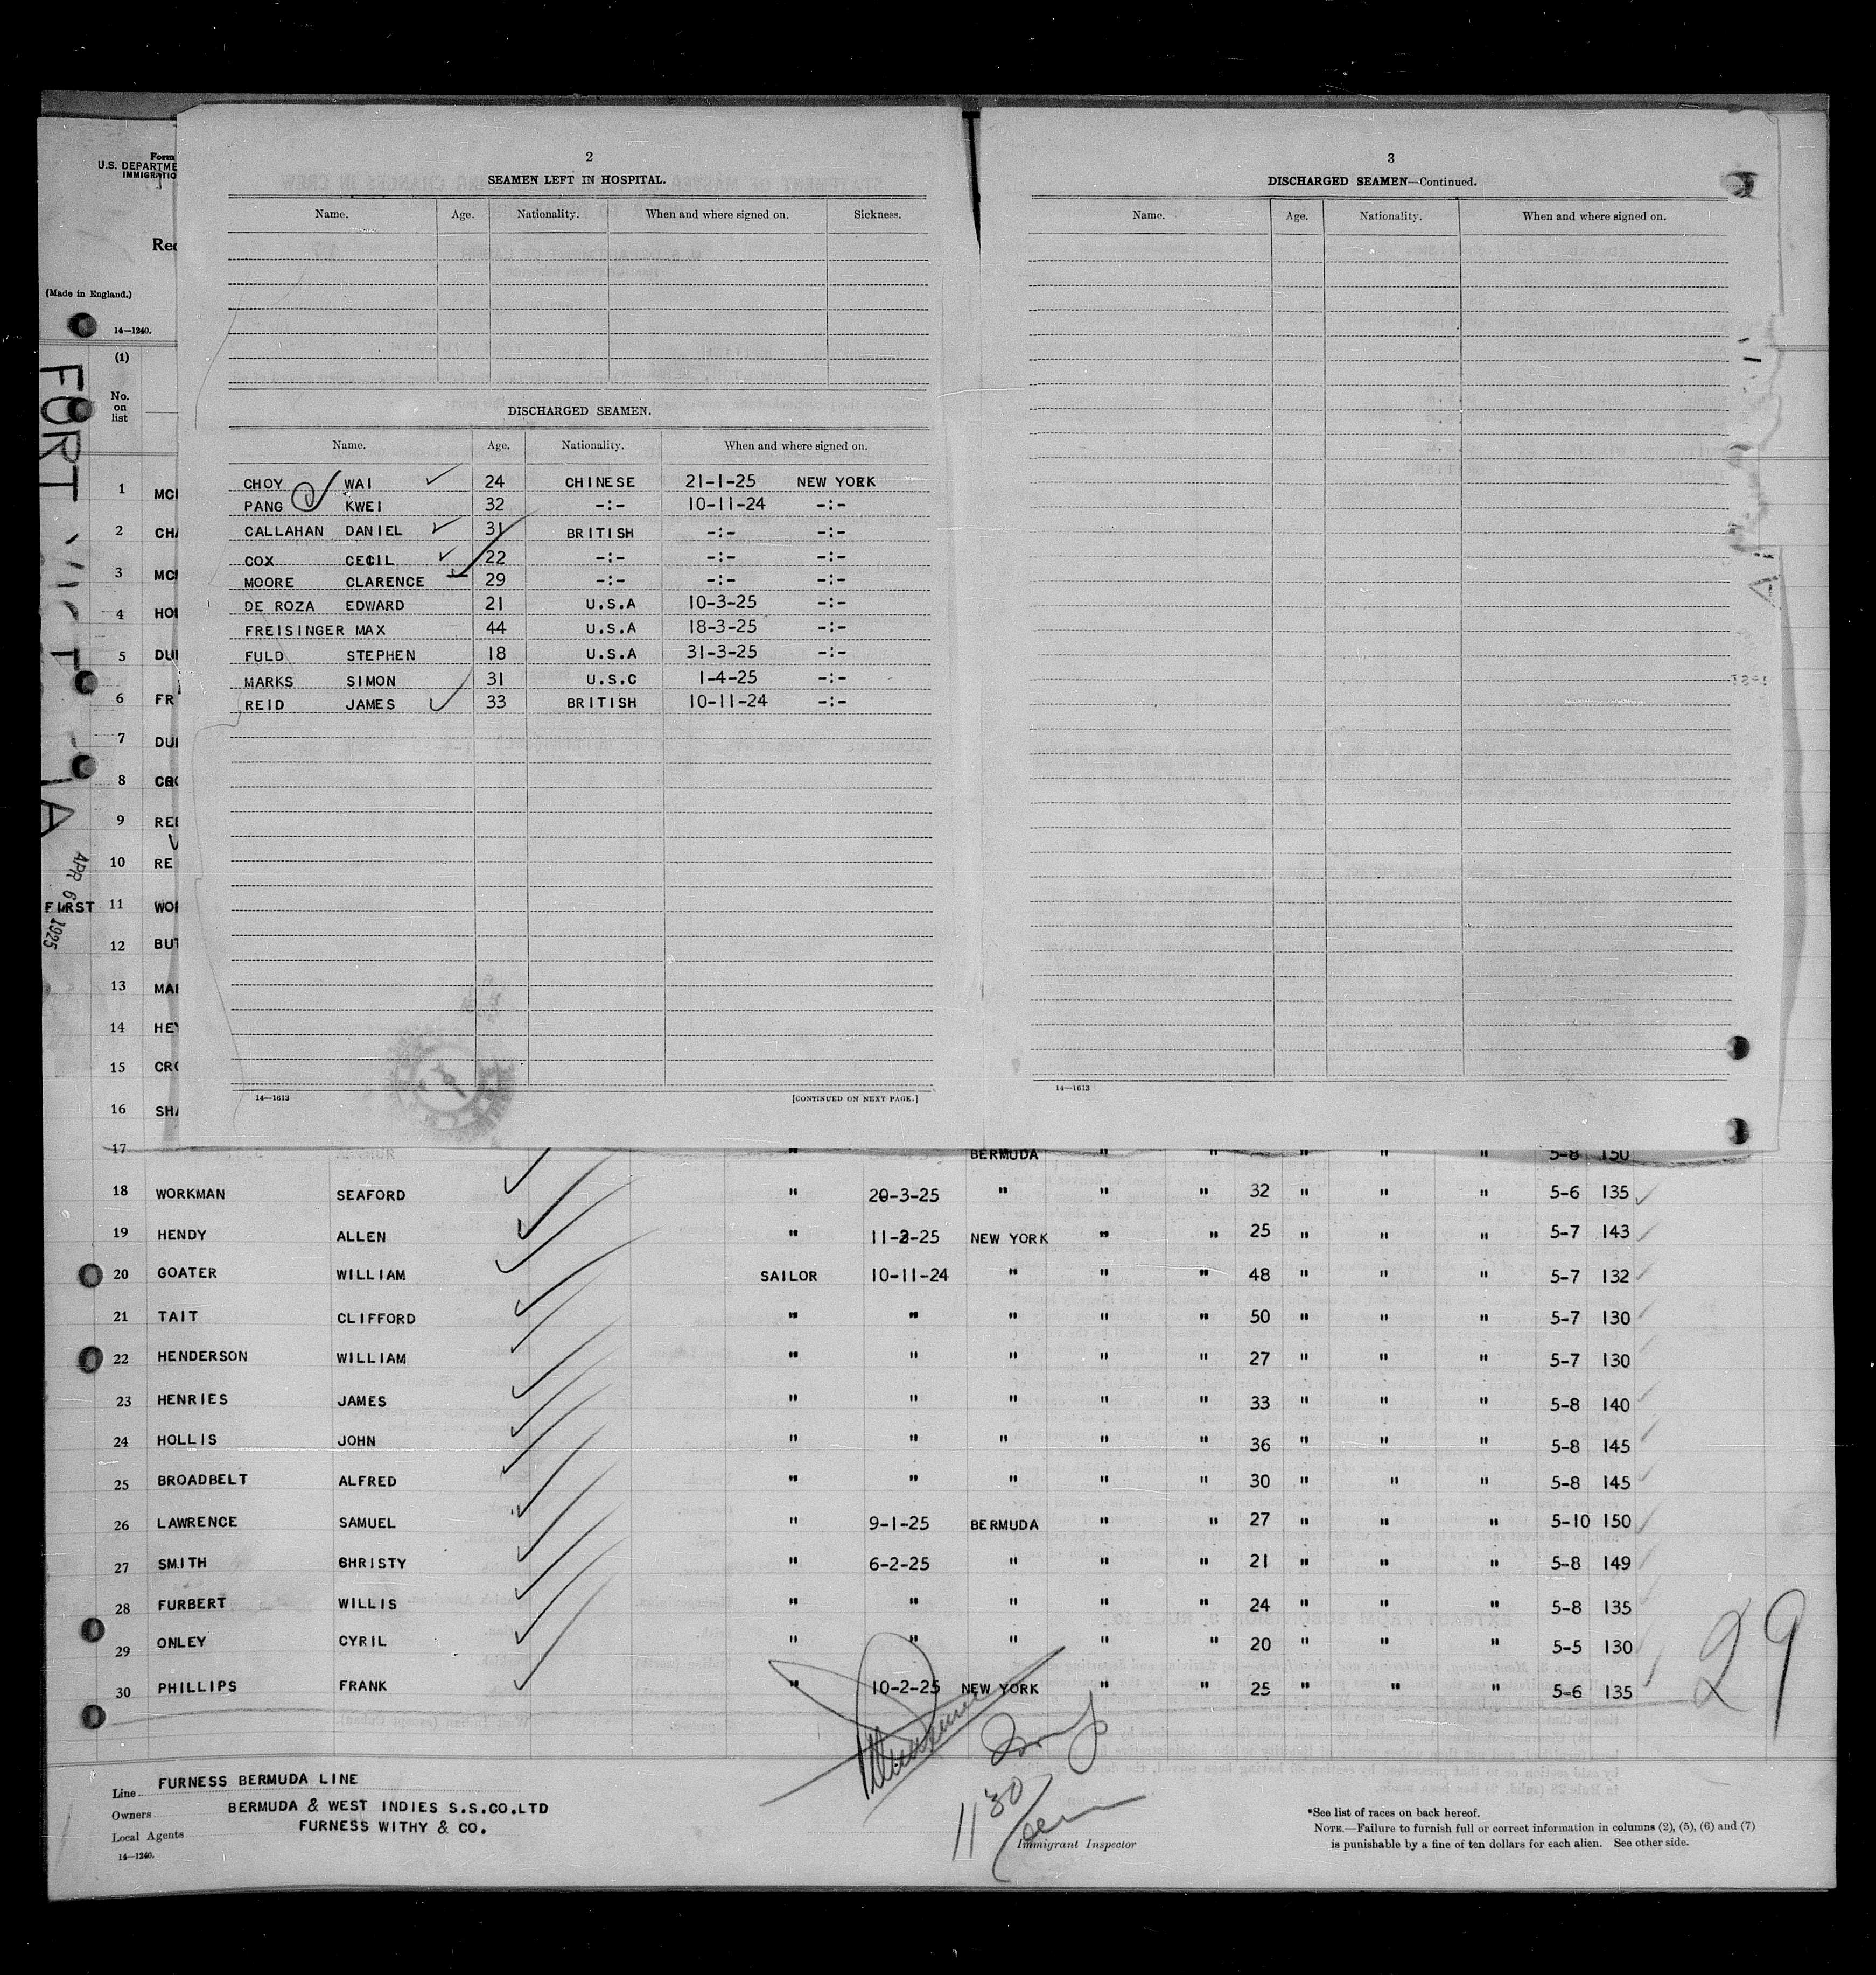 Form
U.S. DEPARTME
IMMIGRATIO
Rec
(Made in England.)
14—1240.
(1)
No.
on
list
FORT VICTORIA
APR 6 1925
FIRST
1 MC
2 CHA
3 MC
4 HO
5 DU
6 FR
7 DU
8 CRO
9 REE
10 RE
11 WO
12 BUT
13 MA
14 HEY
15 CRO
16 SHA
2
SEAMEN LEFT IN HOSPITAL.
Name. Age. Nationality. When and where signed on. Sickness.
DISCHARGED SEAMEN.
Name. Age. Nationality. When and where signed on.
CHOY WAI 24 CHINESE 21-1-25 NEW YORK
PANG KWEI 32 -:- 10-11-24 -:-
CALLAHAN DANIEL 31 BRITISH -:- -:-
COX CECIL 22 -:- -:- -:-
MOORE CLARENCE 29 -:- -:- -:-
DE ROZA EDWARD 21 U.S.A 10-3-25 -:-
FREISINGER MAX 44 U.S.A 18-3-25 -:-
FULD STEPHEN 18 U.S.A 31-3-25 -:-
MARKS SIMON 31 U.S.C 1-4-25 -:-
REID JAMES 33 BRITISH 10-11-24 -:-
14—1613 [CONTINUED ON NEXT PAGE.]
3
DISCHARGED SEAMEN—Continued.
Name. Age. Nationality. When and where signed on.
14—1613
17 " BERMUDA " " " " " 5-8 150
18 WORKMAN SEAFORD " 20-3-25 " " " 32 " " " 5-6 135
19 HENDY ALLEN " 11-2-25 NEW YORK " " 25 " " " 5-7 143
20 GOATER WILLIAM SAILOR 10-11-24 " " " 48 " " " 5-7 132
21 TAIT CLIFFORD " " " " " 50 " " " 5-7 130
22 HENDERSON WILLIAM " " " " " 27 " " " 5-7 130
23 HENRIES JAMES " " " " " 33 " " " 5-8 140
24 HOLLIS JOHN " " " " " 36 " " " 5-8 145
25 BROADBELT ALFRED " " " " " 30 " " " 5-8 145
26 LAWRENCE SAMUEL " 9-1-25 BERMUDA " " 27 " " " 5-10 150
27 SMITH CHRISTY " 6-2-25 " " " 21 " " " 5-8 149
28 FURBERT WILLIS " " " " " 24 " " " 5-8 135
29 ONLEY CYRIL " " " " " 20 " " " 5-5 130
30 PHILLIPS FRANK " 10-2-25 NEW YORK " " 25 " " " 5-6 135
29
Line FURNESS BERMUDA LINE
Owners BERMUDA & WEST INDIES S.S.CO.LTD
Local Agents FURNESS WITHY & CO.
14—1240.
1130
Immigrant Inspector
*See list of races on back hereof.
NOTE.—Failure to furnish full or correct information in columns (2), (5), (6) and (7)
is punishable by a fine of ten dollars for each alien. See other side.